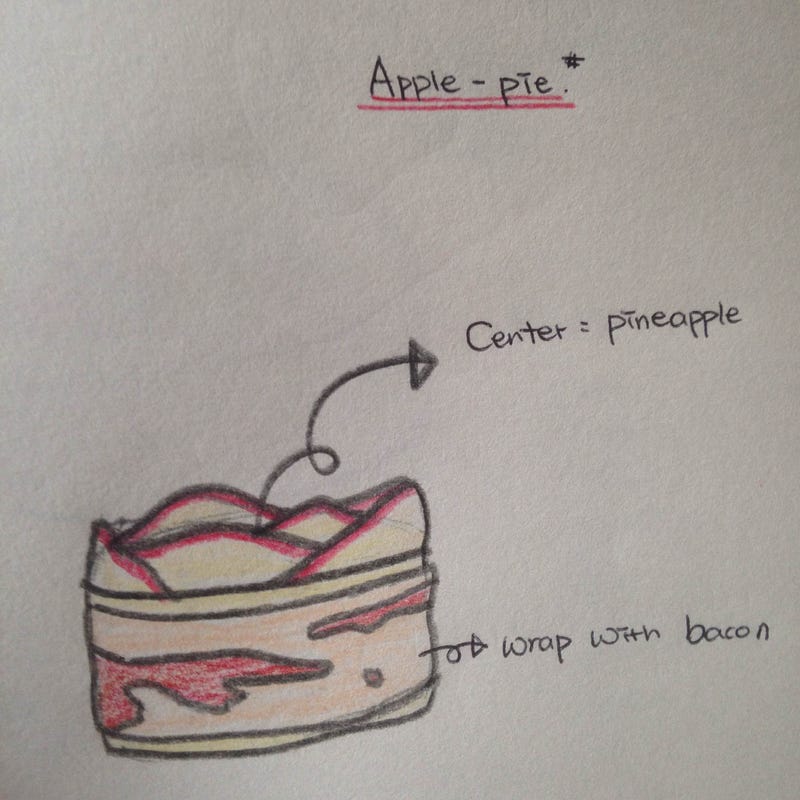 Apple - pie.#
Center = pineapple
wrap with bacon